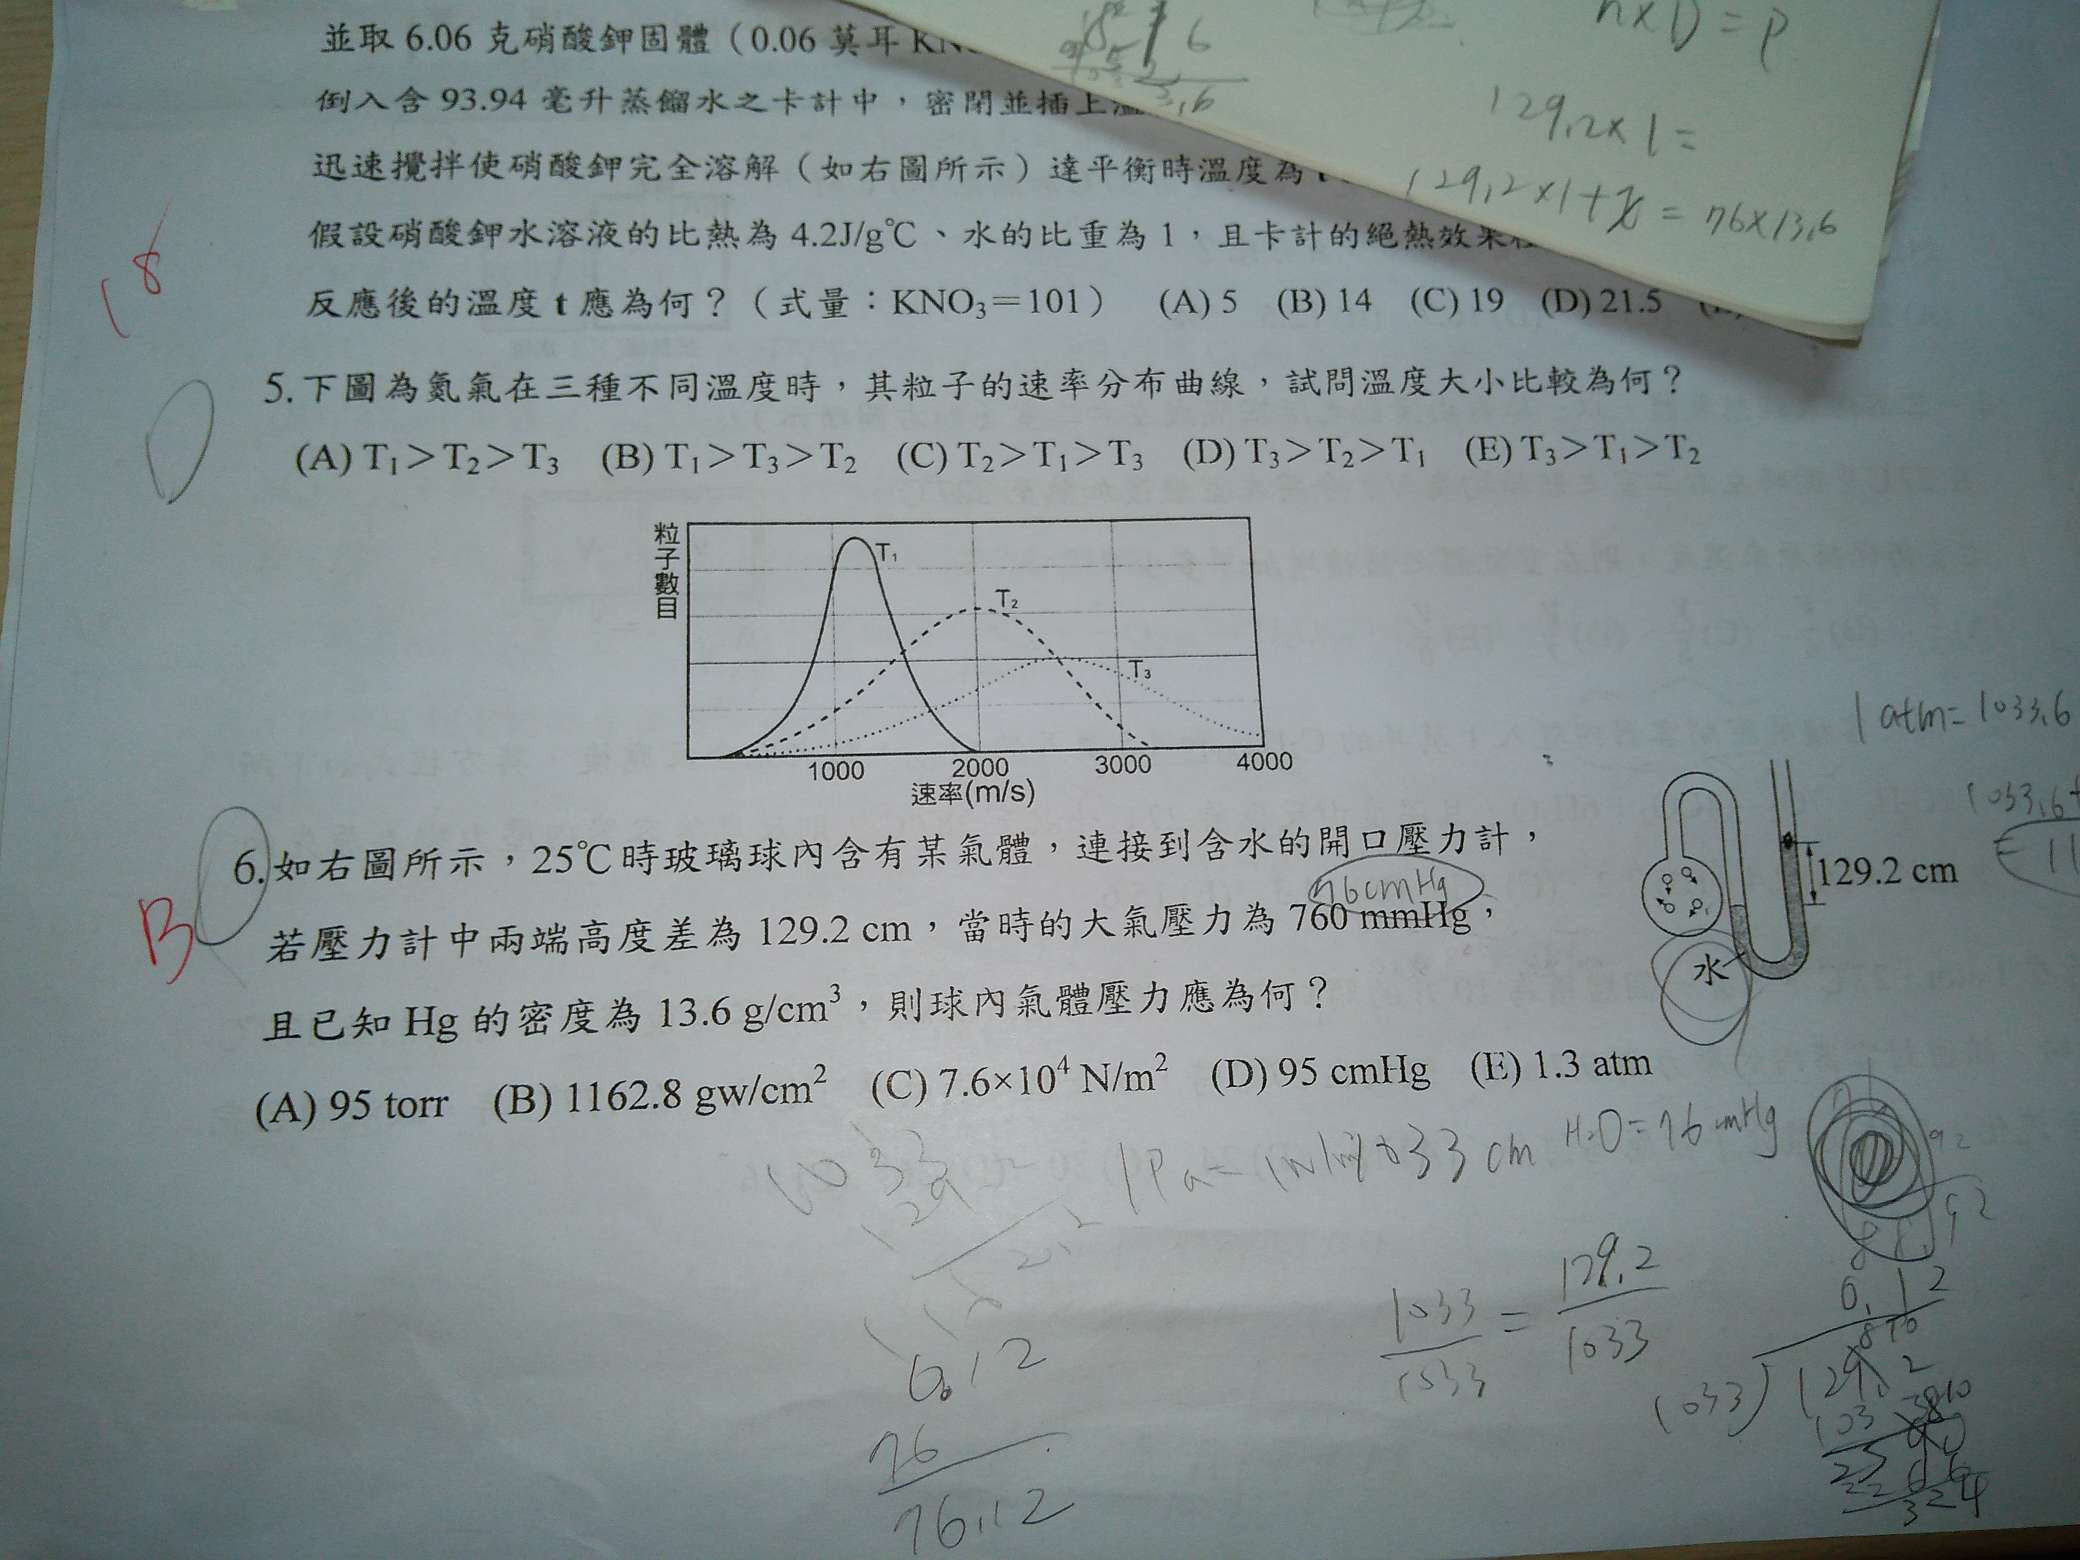 並取 6.06 克硝酸鉀固體（0.06 莫耳
倒入含 93.94 毫升蒸餾水之卡計中，密閉並插上溫
迅速攪拌使硝酸鉀完全溶解（如右圖所示）達平衡時溫度為 t
假設硝酸鉀水溶液的比熱為 4.2J/g℃、水的比重為 1，且卡計的絕熱效果
反應後的溫度 t 應為何？（式量：KNO₃＝101） (A) 5 (B) 14 (C) 19 (D) 21.5
n×D = P
129.2×1=
129.2×1+x = 76×13.6
18
5.下圖為氮氣在三種不同溫度時，其粒子的速率分布曲線，試問溫度大小比較為何？
(A) T₁＞T₂＞T₃ (B) T₁＞T₃＞T₂ (C) T₂＞T₁＞T₃ (D) T₃＞T₂＞T₁ (E) T₃＞T₁＞T₂
粒子數目
T₁
T₂
T₃
1000 2000 3000 4000
速率(m/s)
1 atm = 1033.6
1033.6+
= 11
B
6.如右圖所示，25℃時玻璃球內含有某氣體，連接到含水的開口壓力計，
76cmHg
若壓力計中兩端高度差為 129.2 cm，當時的大氣壓力為 760 mmHg，
且已知 Hg 的密度為 13.6 g/cm³，則球內氣體壓力應為何？
(A) 95 torr (B) 1162.8 gw/cm² (C) 7.6×10⁴ N/m² (D) 95 cmHg (E) 1.3 atm
129.2 cm
水
1033 cm H₂O = 76 cmHg
1033/1033 = 129.2/1033
0.12
1033)129.2
0.12
76
76.12